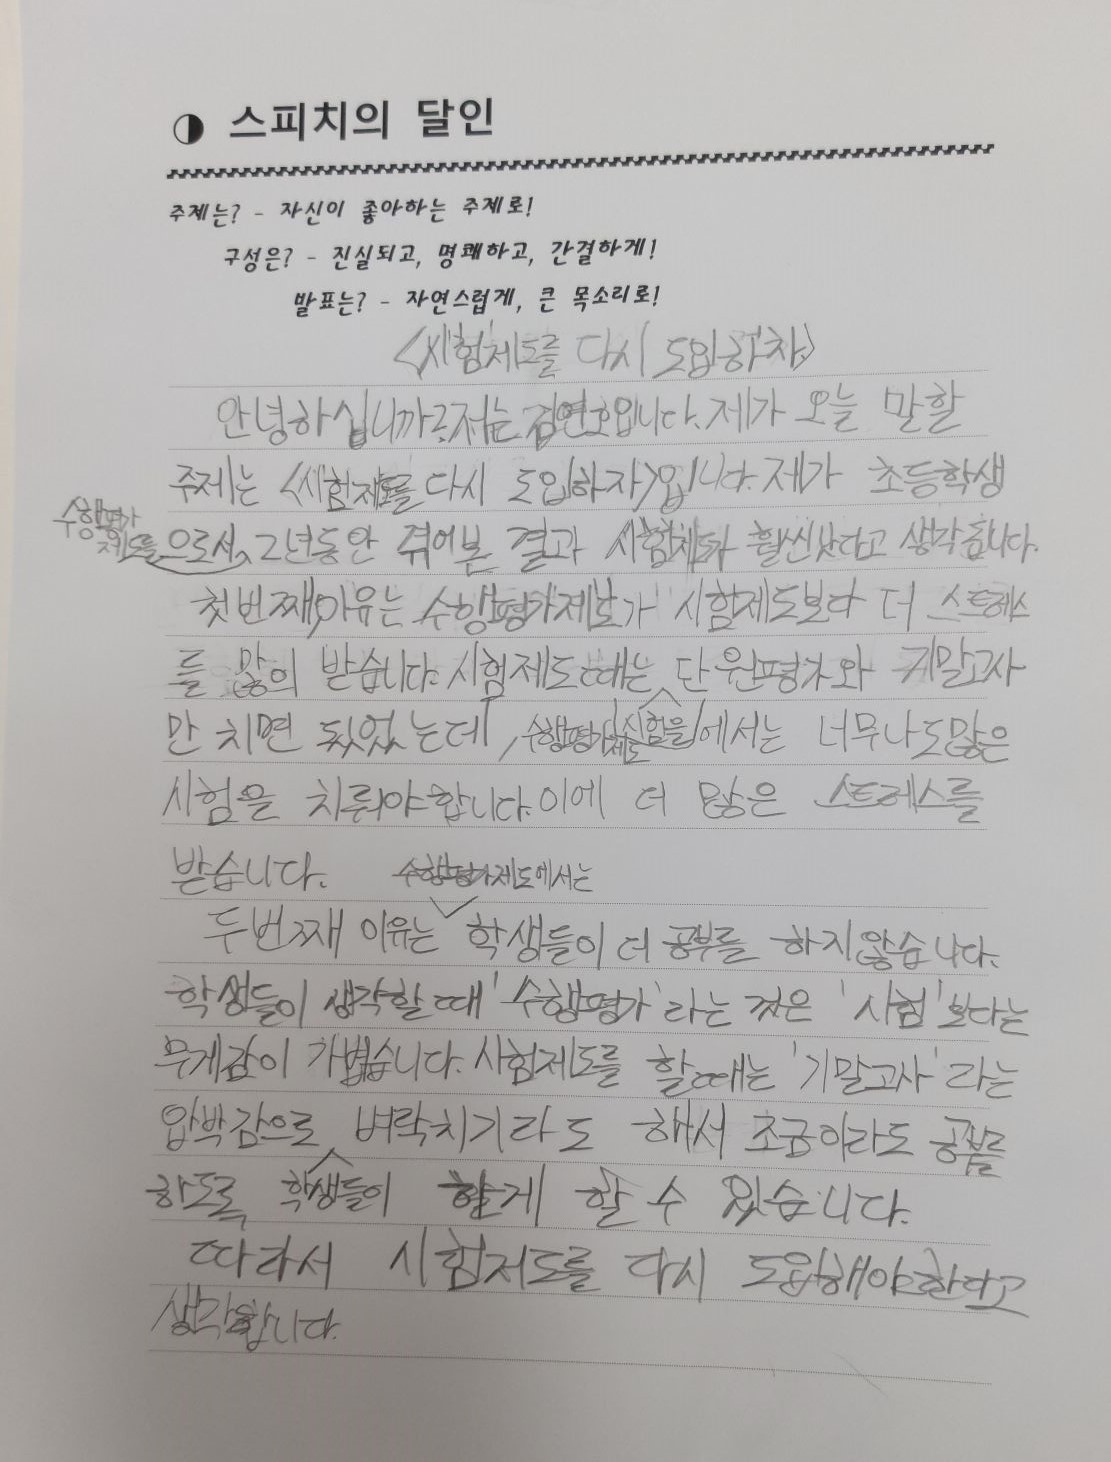 스피치의 달인
주제는? - 자신이 좋아하는 주제로!
구성은? - 진실되고, 명쾌하고, 간결하게!
발표는? - 자연스럽게, 큰 목소리로!
<시험제도를 다시 도입하자>
안녕하십니까? 저는 김연호입니다. 제가 오늘 말할
주제는 <시험제도를 다시 도입하자>입니다. 제가 초등학생
수행평가
제도를
으로서, 2년동안 겪어본 결과 시험제도가 훨씬 낫다고 생각됩니다.
첫번째 이유는 수행평가제도가 시험제도보다 더 스트레스
를 많의 받습니다. 시험제도때는 단원평가와 기말고사
만 치면 됬었는데, 수행평가제도 시험을 에서는 너무나도많은
시험을 치뤄야합니다. 이에 더 많은 스트레스를
받습니다. 수행평가제도에서는
두번째 이유는 학생들이 더 공부를 하지 않습니다.
학생들이 생각할때 '수행평가'라는 것은 '시험'보다는
무게감이 가볍습니다. 시험제도를 할때는 '기말고사'라는
압박감으로 벼락치기라도 해서 조금이라도 공부를
하도록 학생들이 하게 할 수 있습니다.
따라서 시험제도를 다시 도입해야한다고
생각합니다.